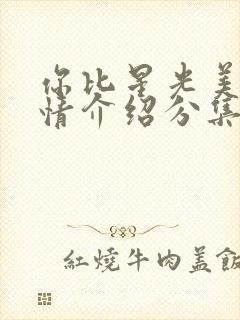 你比星光美
情介绍分集
紅燒牛肉盖飯